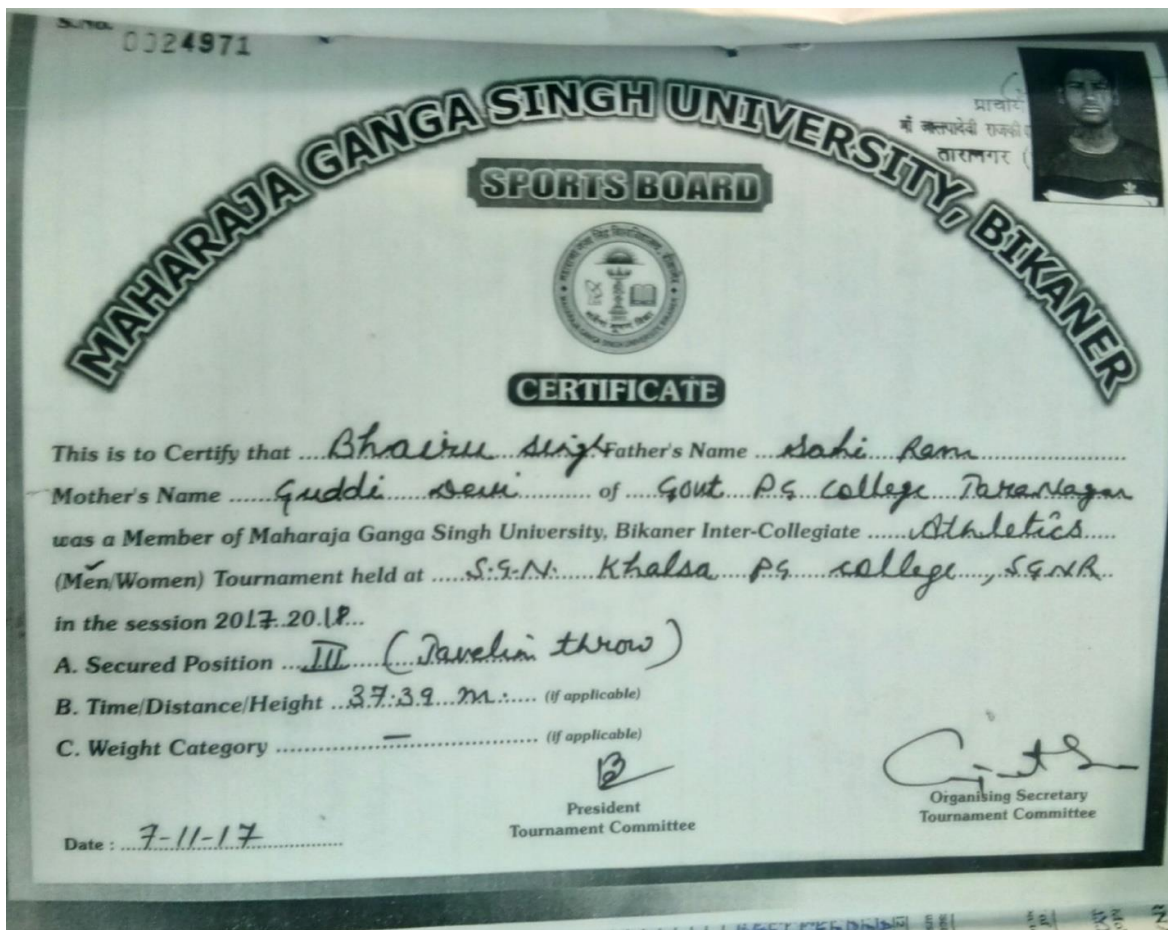 S.No. 0024971
प्राचार्य
तारानगर (
MAHARAJA GANGA SINGH UNIVERSITY, BIKANER
SPORTS BOARD
CERTIFICATE
This is to Certify that Bhairu Singh Father's Name Sahi Ram
Mother's Name Guddi Devi of Gout PG College TaraNagar
was a Member of Maharaja Ganga Singh University, Bikaner Inter-Collegiate Athletics
(Men/Women) Tournament held at S.G.N. Khalsa PG college, SGNR
in the session 2017.2018
A. Secured Position III (Javelin throw)
B. Time/Distance/Height 37.39 m. (if applicable)
C. Weight Category – (if applicable)
President
Tournament Committee
Organising Secretary
Tournament Committee
Date : 7-11-17